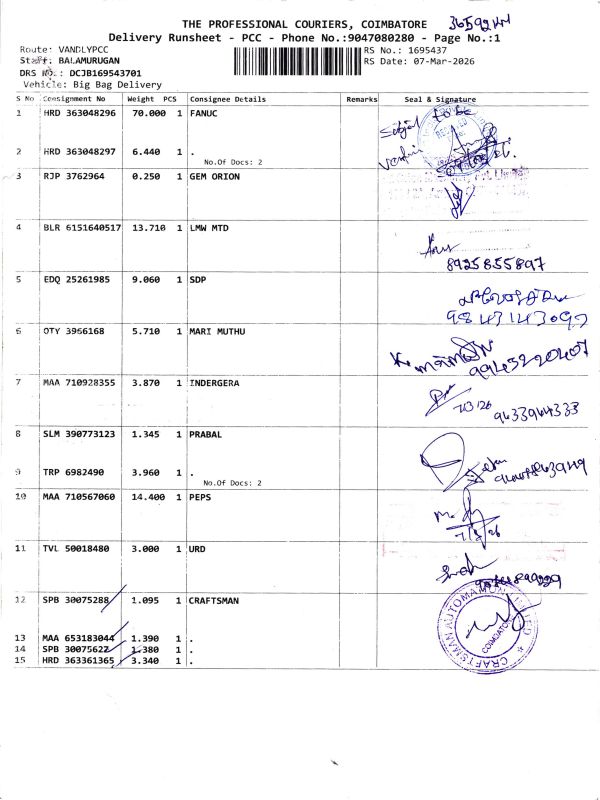 THE PROFESSIONAL COURIERS, COIMBATORE
Delivery Runsheet - PCC - Phone No.:9047080280 - Page No.:1
Route: VANDLYPCC
RS No.: 1695437
Staff: BALAMURUGAN
RS Date: 07-Mar-2026
DRS No.: DCJB169543701
Vehicle: Big Bag Delivery
S No Consignment No Weight PCS Consignee Details Remarks Seal & Signature
1 HRD 363048296 70.000 1 FANUC
2 HRD 363048297 6.440 1 .
No.Of Docs: 2
3 RJP 3762964 0.250 1 GEM ORION
4 BLR 6151640517 13.710 1 LMW MTD
8925855897
5 EDQ 25261985 9.060 1 SDP
9843143097
6 OTY 3966168 5.710 1 MARI MUTHU
9945220407
7 MAA 710928355 3.870 1 INDERGERA
7/3/26
9633964333
8 SLM 390773123 1.345 1 PRABAL
9 TRP 6982490 3.960 1 .
No.Of Docs: 2
10 MAA 710567060 14.400 1 PEPS
7/3/26
11 TVL 50018480 3.000 1 URD
12 SPB 30075288 1.095 1 CRAFTSMAN
13 MAA 653183044 1.390 1 .
14 SPB 30075627 1.380 1 .
15 HRD 363361365 3.340 1 .
CRAFTSMAN AUTOMATION LIMITED
COIMBATORE